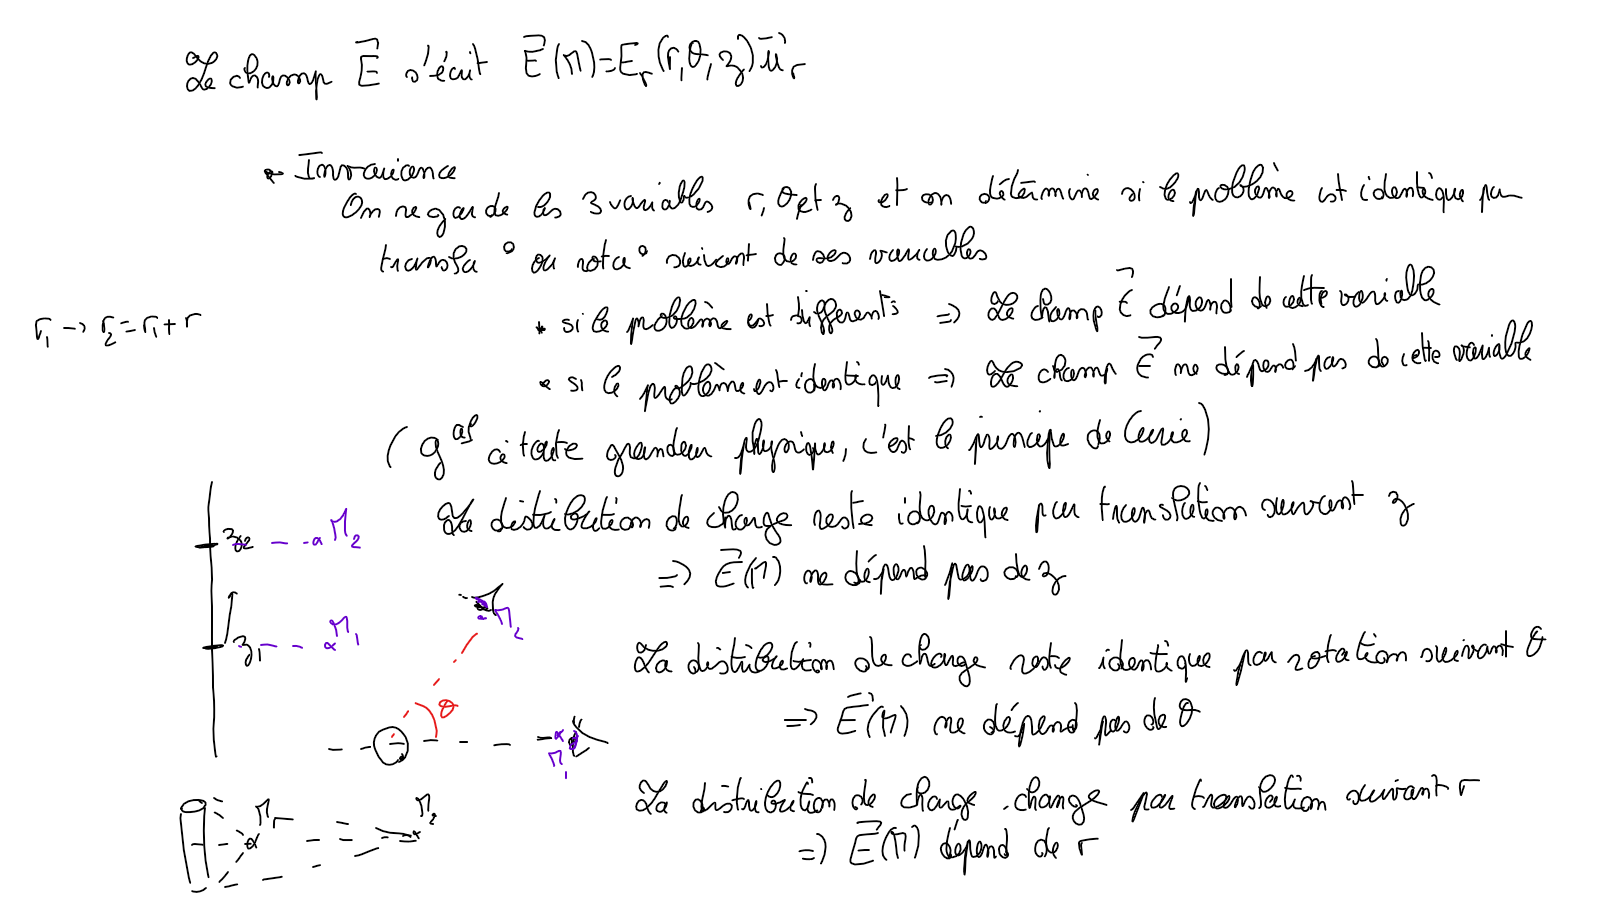 Le champ E⃗ s'écrit E⃗(M)=Er(r,θ,z)u⃗r
Invariance
On regarde les 3 variables r, θ et z et on détermine si le problème est identique par
transla° ou rota° suivant de ses variables
r₁ → r₂=r₁+r
• si le problème est differents => Le champ E⃗ dépend de cette variable
• si le problème est identique => Le champ E⃗ ne dépend pas de cette variable
(gᵃˡ à toute grandeur physique, c'est le principe de Curie)
La distribution de charge reste identique par translation suivant z
z₂ M₂
=> E⃗(M) ne dépend pas de z
z₁ M₁
M₂
La distribution de charge reste identique par rotation suivant θ
θ
=> E⃗(M) ne dépend pas de θ
M₁
La distribution de charge change par translation suivant r
M₁ M₂
=> E⃗(M) dépend de r